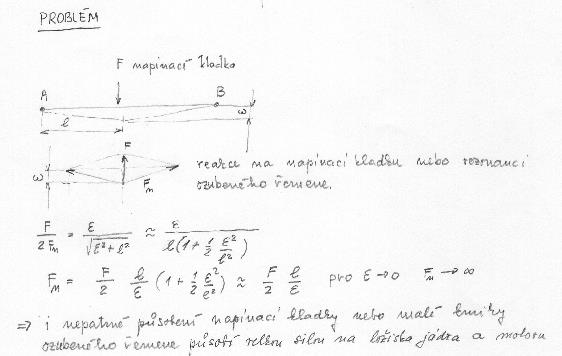 PROBLÉM
F napínací kladka
A B
ω
l
F
ω
F_m
reakce na napínací kladku nebo rezonanci
ozubeného řemene.
F / 2F_m = ε / √(ε² + l²) ≈ ε / l(1 + 1/2 ε²/l²)
F_m = F/2 l/ε (1 + 1/2 ε²/l²) ≈ F/2 l/ε pro ε → 0 F_m → ∞
⇒ i nepatrné působení napínací kladky nebo malé kmity
ozubeného řemene působí velkou silou na ložiska jádra a motoru